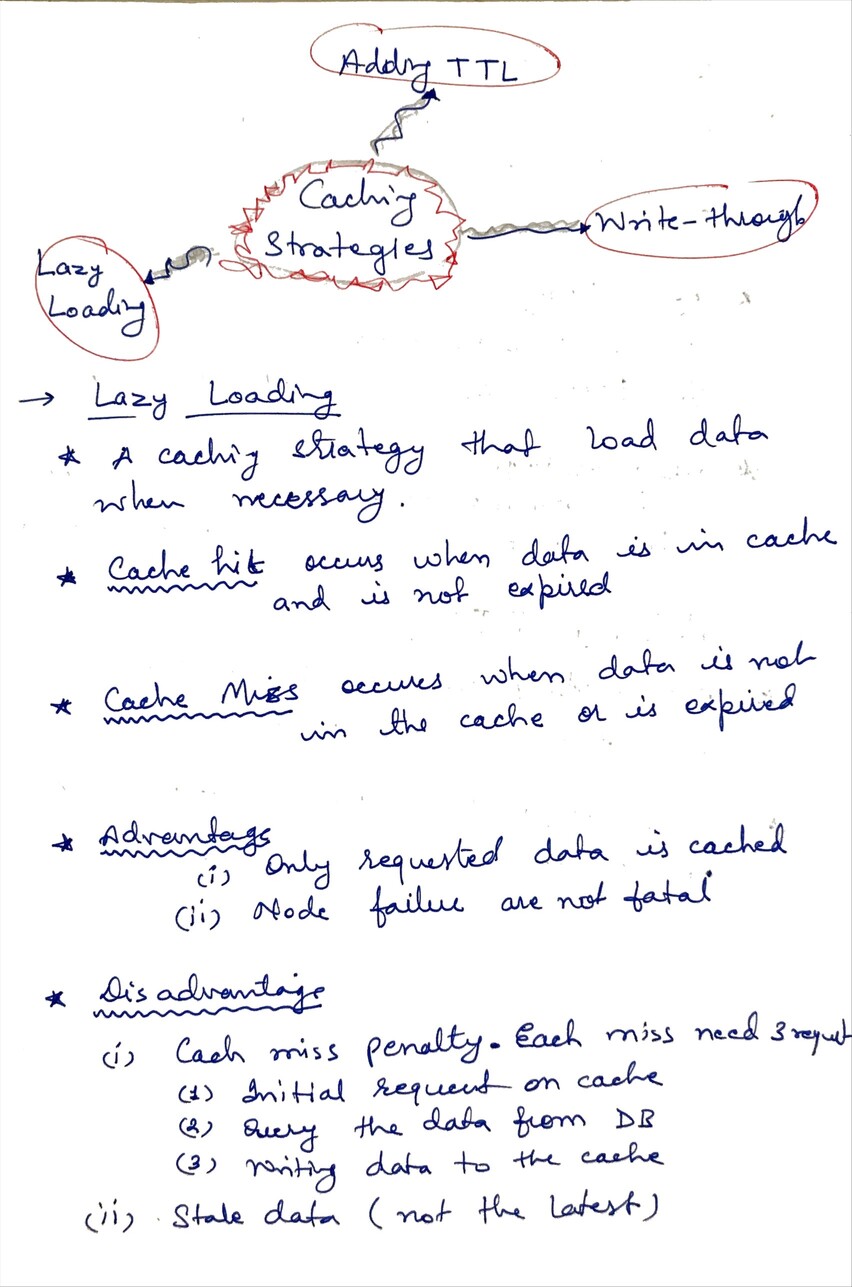 Adding TTL
Caching
Strategies
Write-through
Lazy
Loading
→ Lazy Loading
* A caching strategy that load data
when necessary.
* Cache hit occurs when data is in cache
and is not expired
* Cache Miss occures when data is not
in the cache or is expired
* Advantags
(i) Only requested data is cached
(ii) Node failure are not fatal
* Disadvantage
(i) Cach miss penalty. Each miss need 3 request
(1) Initial request on cache
(2) Query the data from DB
(3) Writing data to the cache
(ii) Stale data (not the latest)